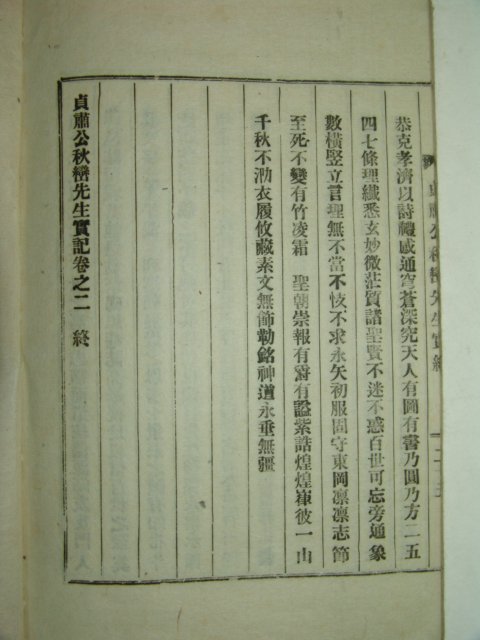 恭克孝濟以詩禮感通穹蒼深究天人有圖有書乃圓乃方二五
四七條理纖悉玄妙微茫質諸聖賢不迷不惑百世可忘旁通象
數橫竪立言理無不當不忮不求永矢初服固守東岡凛凛志節
至死不變有竹凌霜 聖朝崇報有爵有謚紫誥煌煌嵂彼一山
千秋不泐衣履攸藏素文無飾勒銘神道永垂無疆
貞肅公秋巒先生實記卷之二 終